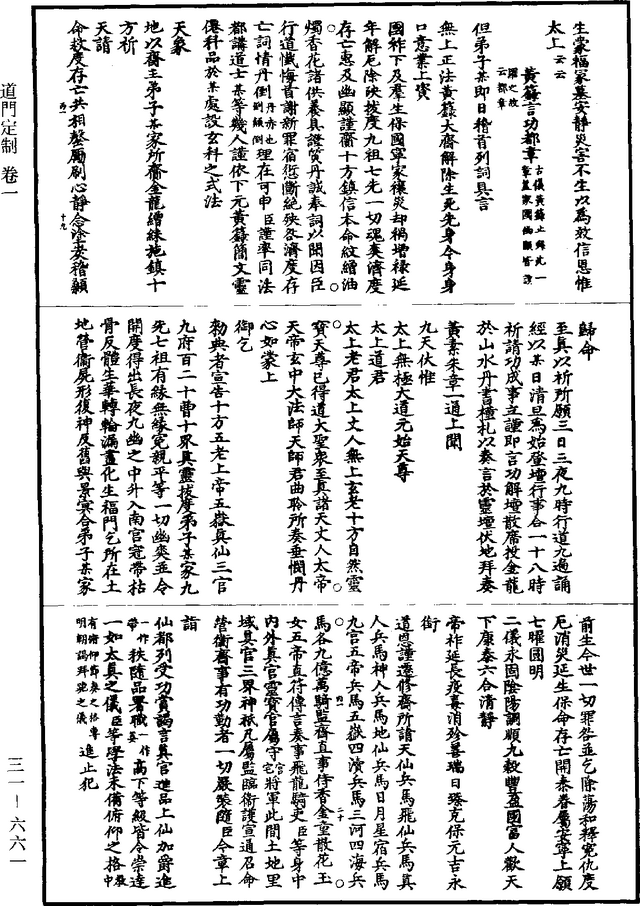 道門定制　卷一
生蒙福冢墓安靜災害不生以為效信恩惟
太上云云
黃籙言功都章古儀黃籙止錄此一章盖家國幽顯皆該羅之故云都章
但弟子某即日稽首列詞具言
無上正法黃籙大齋解除生死先身今身身
口意業上資
國祚下及羣生保國寧家禳災却禍增祿延
年解厄除殃拔度九祖七先一切魂爽濟度
存亡惠及幽顯謹齎十方鎮信本命紋繒油
燭香花諸供養具證質丹誠奉詞以聞因臣
行道懺悔首謝新罪宿愆斷絕殃咎濟度存
亡詞情丹倒丹亦也倒願倒理在可申臣謹率同法
都講道士某等幾人謹依下元黃籙簡文靈
僊科品於某處設玄科之式法
天象
地以齋主弟子某家所齎金龍繒綵施鎮十
方祈
天請
命救度存亡共相罄厲刷心靜念塗炭稽顙
歸命
至真以祈所願三日三夜九時行道九過誦
經以某日清旦為始登壇行事合一十八時
祈請功成事立謹即言功解壇散席投金龍
於山水丹書櫝札以奏言於靈壇伏地拜奏
黃素朱章一通上聞
九天伏惟
太上無極大道元始天尊
太上道君
太上老君太上丈人無上玄老十方自然靈
寶天尊已得道大聖衆至真諸天丈人太帝
天帝玄中大法師天師君曲聆所奏垂憫丹
心如蒙上
御乞
勑典者宣告十方五老上帝五嶽真仙三官
九府百二十曹十界真靈拔度弟子某家九
先七祖有緣無緣寃親平等一切幽爽並令
開度得出長夜九幽之中升入南宮冠帶枯
骨反體生華轉輪漏盡化生福門乞所在土
地營衛屍形復神反舊與景冥合弟子某家
前生今世一切罪咎並乞除蕩和釋寃仇度
厄消災延生保命存亡開泰眷屬安寧上願
七曜圓明
二儀永固陰陽調順九穀豐盈國富人歡天
下康泰六合清靜
帝祚延長疫毒消殄善瑞日臻克保元吉永
銜
道恩謹遷修齋所請天仙兵馬飛仙兵馬真
人兵馬神人兵馬地仙兵馬日月星宿兵馬
九宮五帝兵馬五嶽四瀆兵馬三河四海兵
馬各九億萬騎監齋直事侍香金童散花玉
女五帝直符傳言奏事飛龍騎吏臣等身中
內外真官靈寶官屬守宅將軍此間土地里
域真官三界神祇凡屬監臨衛護宣通召命
營衛齋事有功勤者一切嚴裝隨臣今章上
詣
仙都列受功賞謁言真官進品上仙加爵進
秩隨品署職高下等級皆令崇達
一如太真之儀臣等學法未備俯仰之格
進止犯
三一－六六一